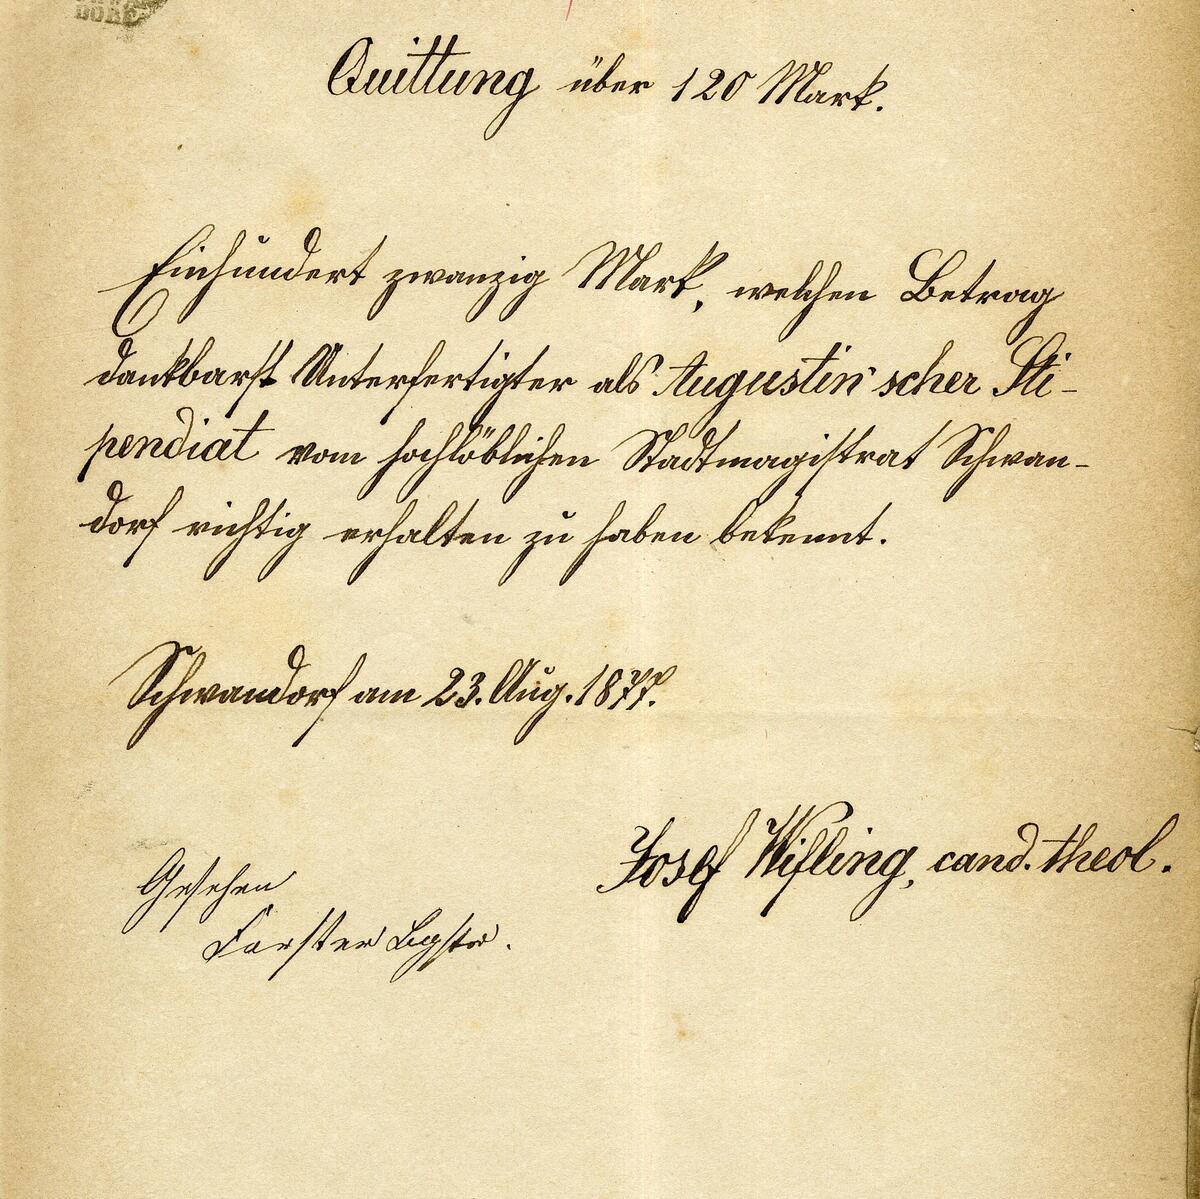 DORF
Quittung über 120 Mark.
Einhundert zwanzig Mark, welchen Betrag
dankbarst Unterfertigter als Augustin'scher Sti-
pendiat vom hochlöblichen Stadtmagistrat Schwan-
dorf richtig erhalten zu haben bekennt.
Schwandorf am 23. Aug. 1877.
Josef Wifling, cand. theol.
Gesehen
Forster Bgstr.